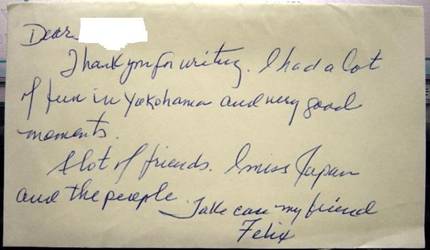 Dear
Thank you for writing. I had a lot
of fun in Yokohama and very good
moments.
A lot of friends. I miss Japan
and the people.
Take care my friend
Felix